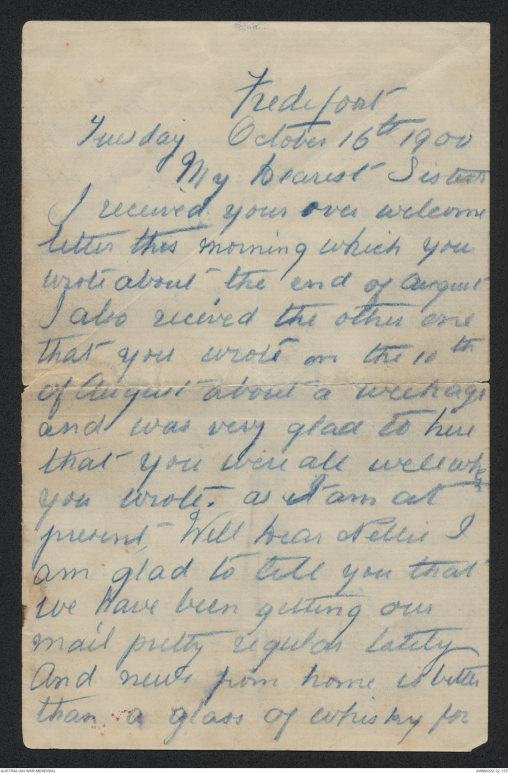 Fredefoart
Tuesday October 16th 1900
My Dearest Sister
I received your over welcome
letter this morning which you
wrote about the end of August
I also recived the other one
that you wrote on the 10th
of August about a week ago
and was very glad to here
that you were all well
you wrote. as I am at
present Well Dear Nellie I
am glad to tell you that
we have been getting our
mail pretty regular lately
And news from home is better
than a glass of whisky for
AUSTRALIAN WAR MEMORIAL